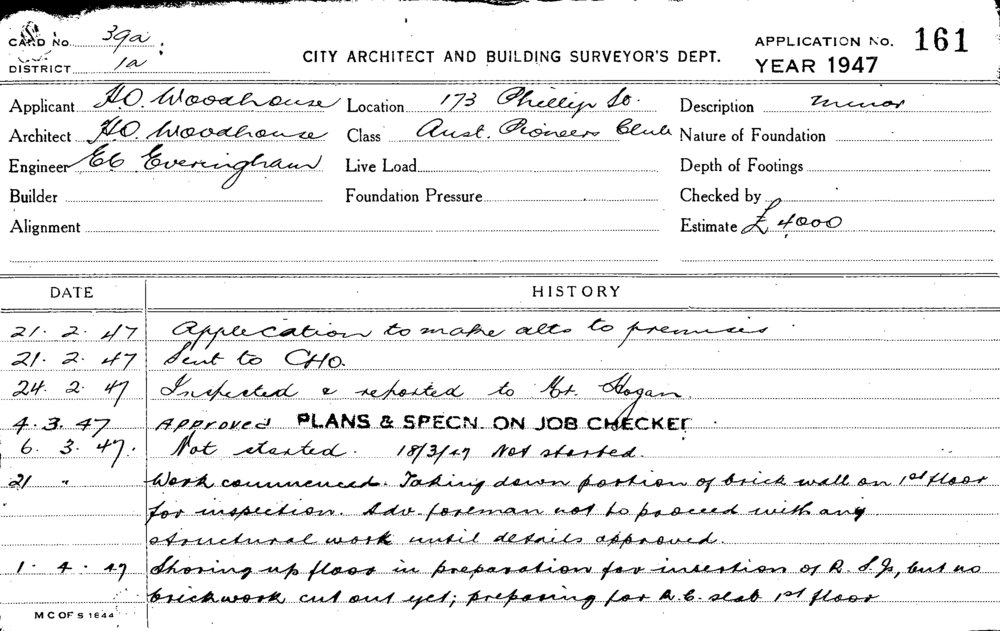 CARD No. 39a
DISTRICT 1a
CITY ARCHITECT AND BUILDING SURVEYOR'S DEPT.
APPLICATION No. 161
YEAR 1947
Applicant H.O. Woodhouse Location 173 Phillip St. Description minor
Architect H.O. Woodhouse Class Aust. Pioneers Club Nature of Foundation
Engineer EC Everingham Live Load Depth of Footings
Builder Foundation Pressure Checked by
Alignment Estimate £4000
DATE HISTORY
21. 2. 47 Application to make alts to premises
21. 2. 47 Sent to CHO.
24. 2. 47 Inspected & reported to Mr. Hogan.
4. 3. 47 Approved PLANS & SPECN. ON JOB CHECKED
6. 3. 47. Not started. 18/3/47 Not started.
21 " Work commenced. Taking down portion of brick wall on 1st floor
for inspection. Adv. foreman not to proceed with any
structural work until details approved.
1. 4. 47 Shoring up floor in preparation for insertion of R.S.Js, but no
brickwork cut out yet; preparing for R.C. slab 1st floor
M C OF S 1844